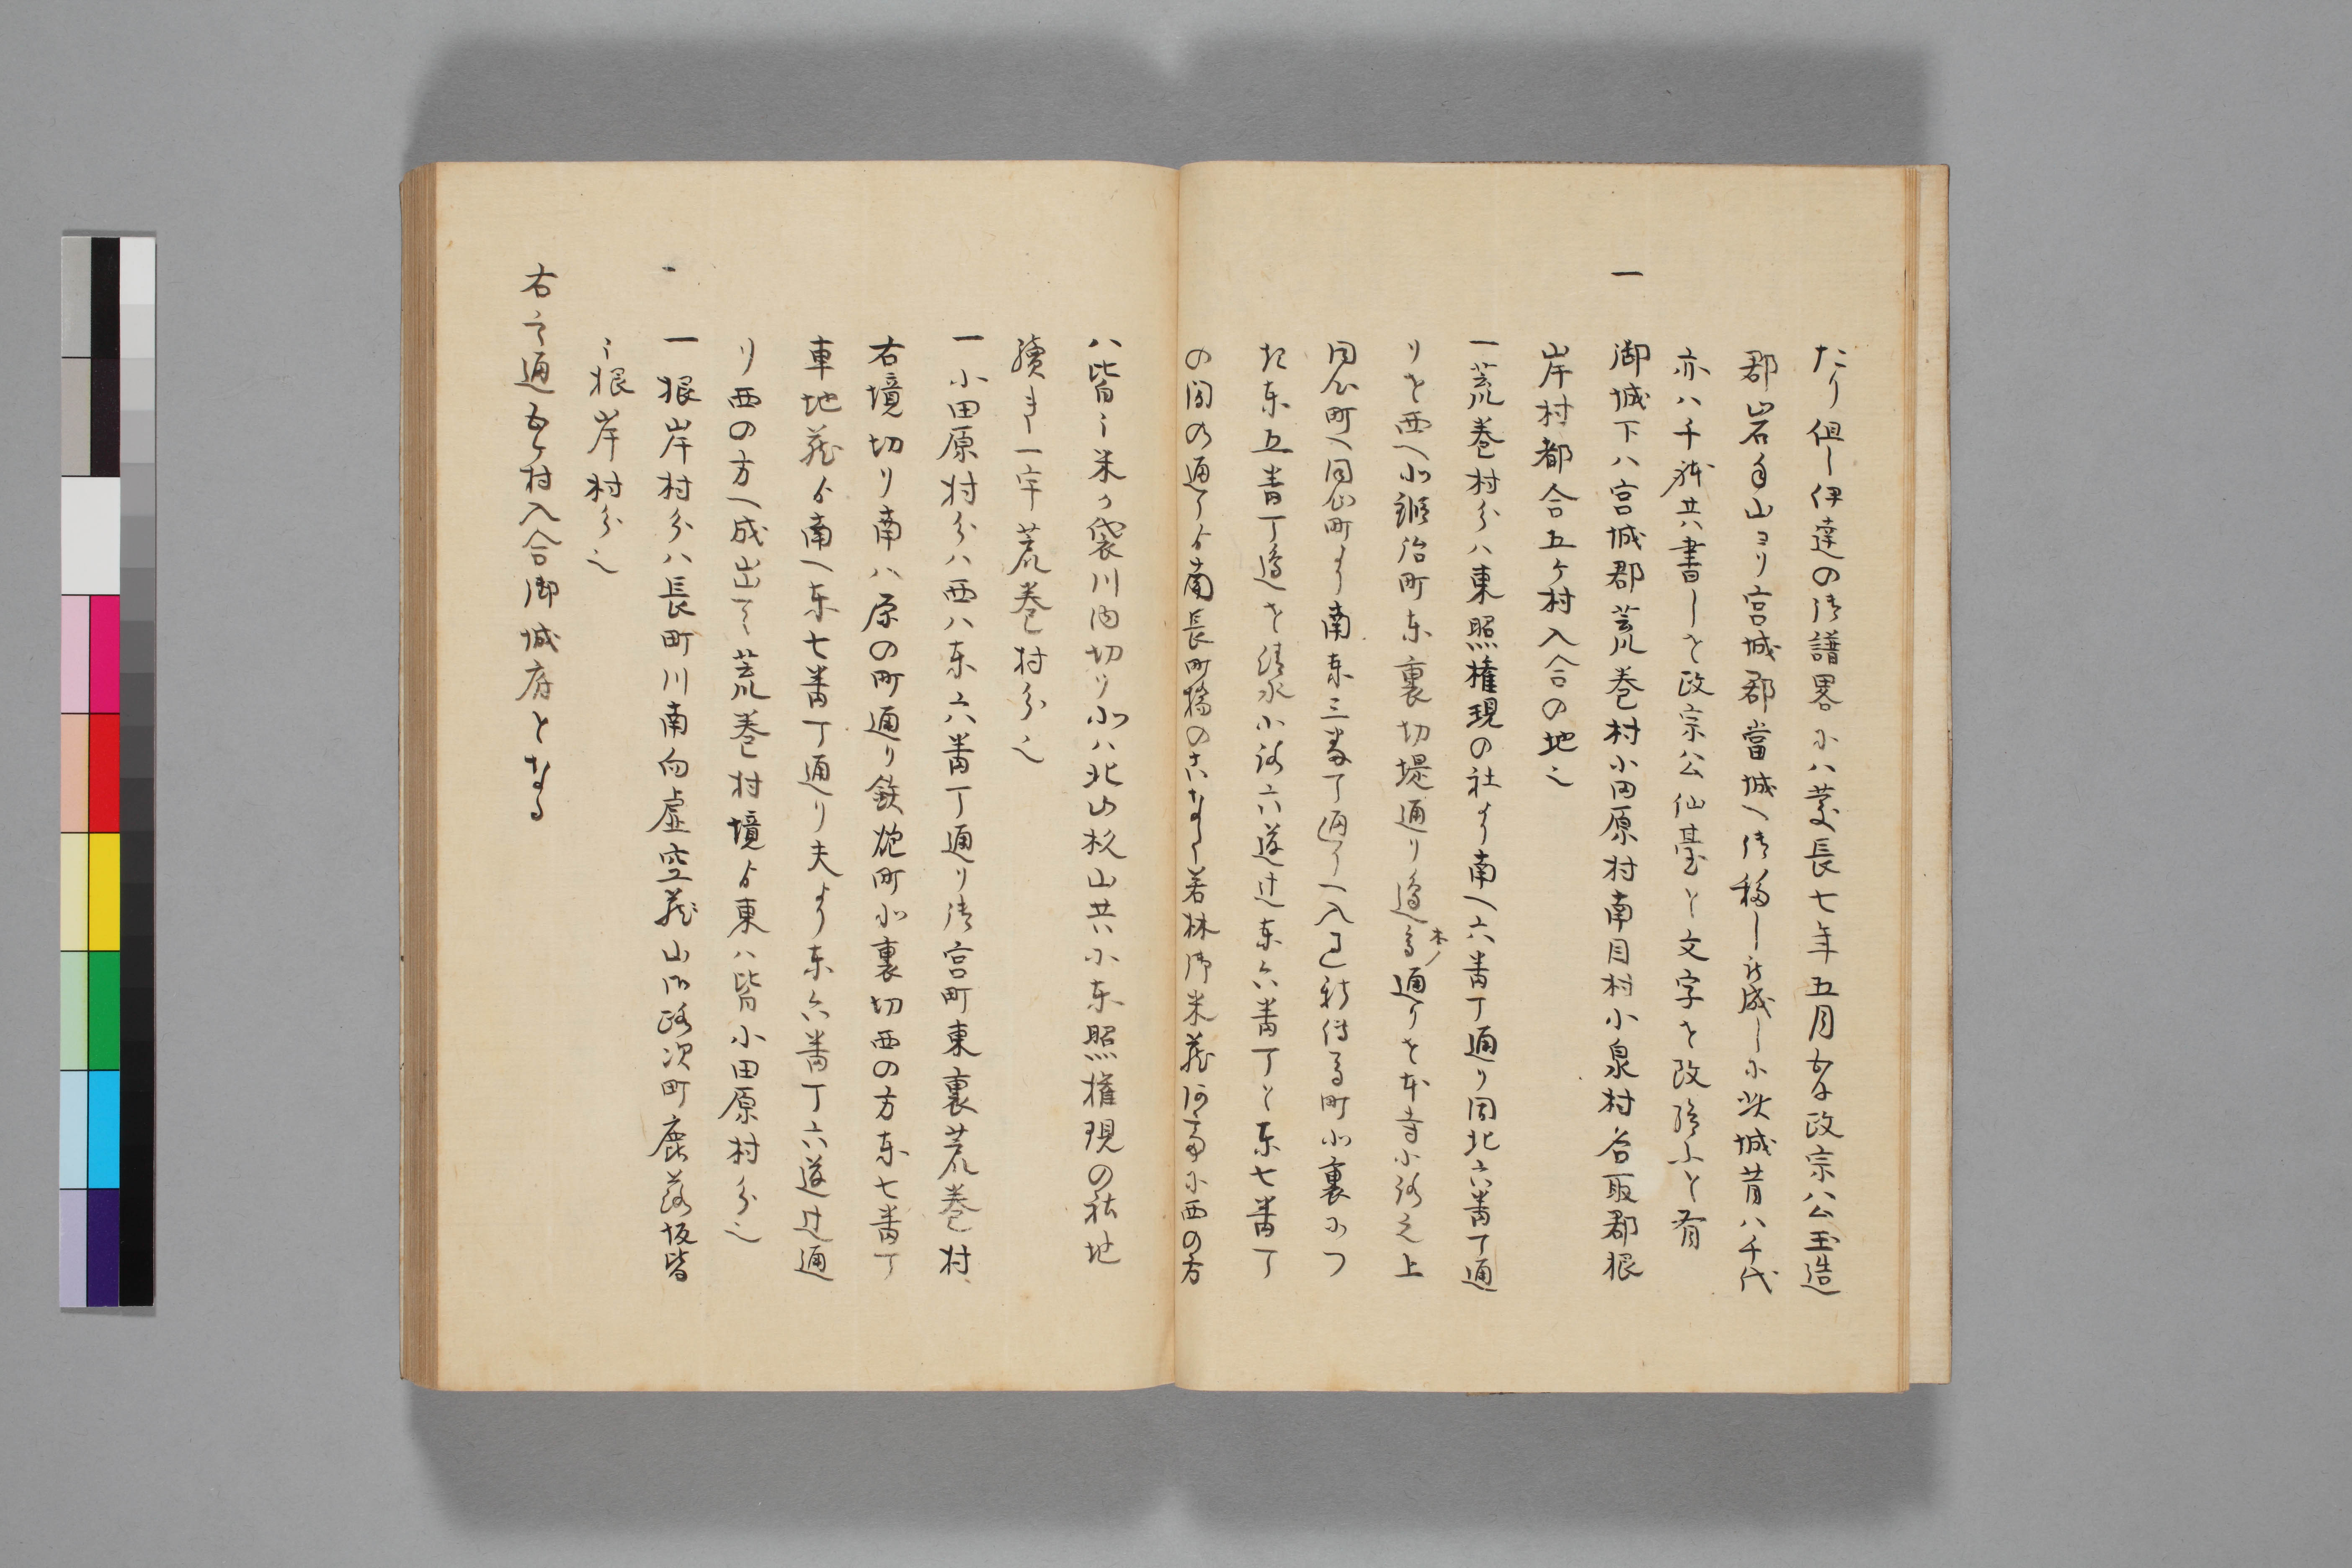 たり但し伊達の御譜畧にハ慶長七年五月政宗公玉造
郡岩手山ヨリ宮城郡當城へ御移し被成しに此城昔ハ千代
亦ハ千躰共書しを政宗公仙臺と文字を改給ふと有
一 御城下ハ宮城郡荒巻村小田原村南目村小泉村名取郡根
岸村都合五ケ村入合の地也
一荒巻村分ハ東照権現の社より南へ六番丁通り同北六番丁通
りを西へ北鍛治町東裏切堤通り通りを寺小路之上
同心町へ同心町より南東三番丁通りへ入新傳馬町北裏につ
た東五番丁を清水小路六道辻東六番丁と東七番丁
の間の通りゟ南長町橋の若林御米蔵に西の方
ハ皆々米ケ袋川内切り北ハ北山杉山共ニ東照権現の社地
續き一宇荒巻村分也
一小田原村分ハ西ハ東六番丁通り御宮町東裏荒巻村
右境切り南ハ原の町通り鉄炮町北裏切西の方東七番丁
車地蔵ゟ南へ東七番丁通り夫より東六番丁六道辻通
り西の方へ成出て荒巻村境ゟ東ハ皆小田原村分也
一根岸村分ハ長町川南向虚空蔵山路次町鹿落坂皆
々根岸村分也
右之通五ケ村入合御城府となる